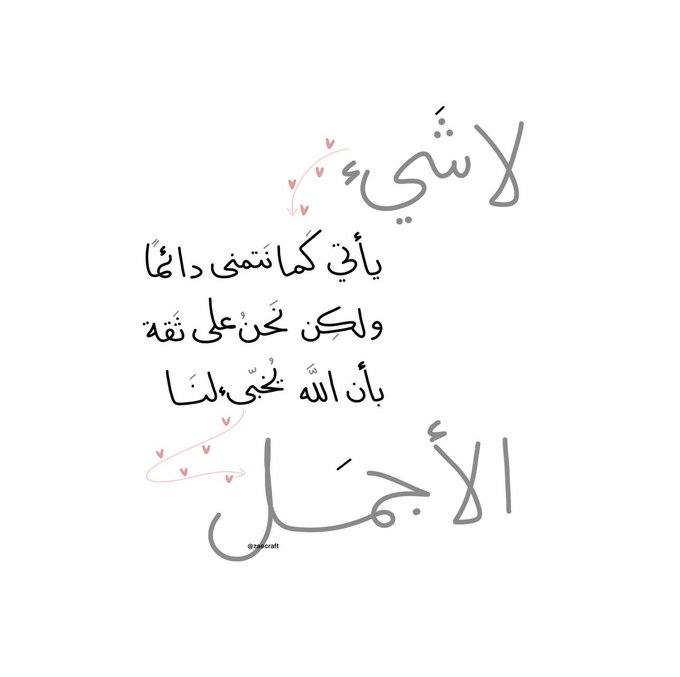 لا شَيء
يأتي كَما نَتمنى دائمًا
ولكِن نَحنُ على ثَقة
بأن اللَّه يُخبّىء لنَا
الأجمَل
@zaecraft